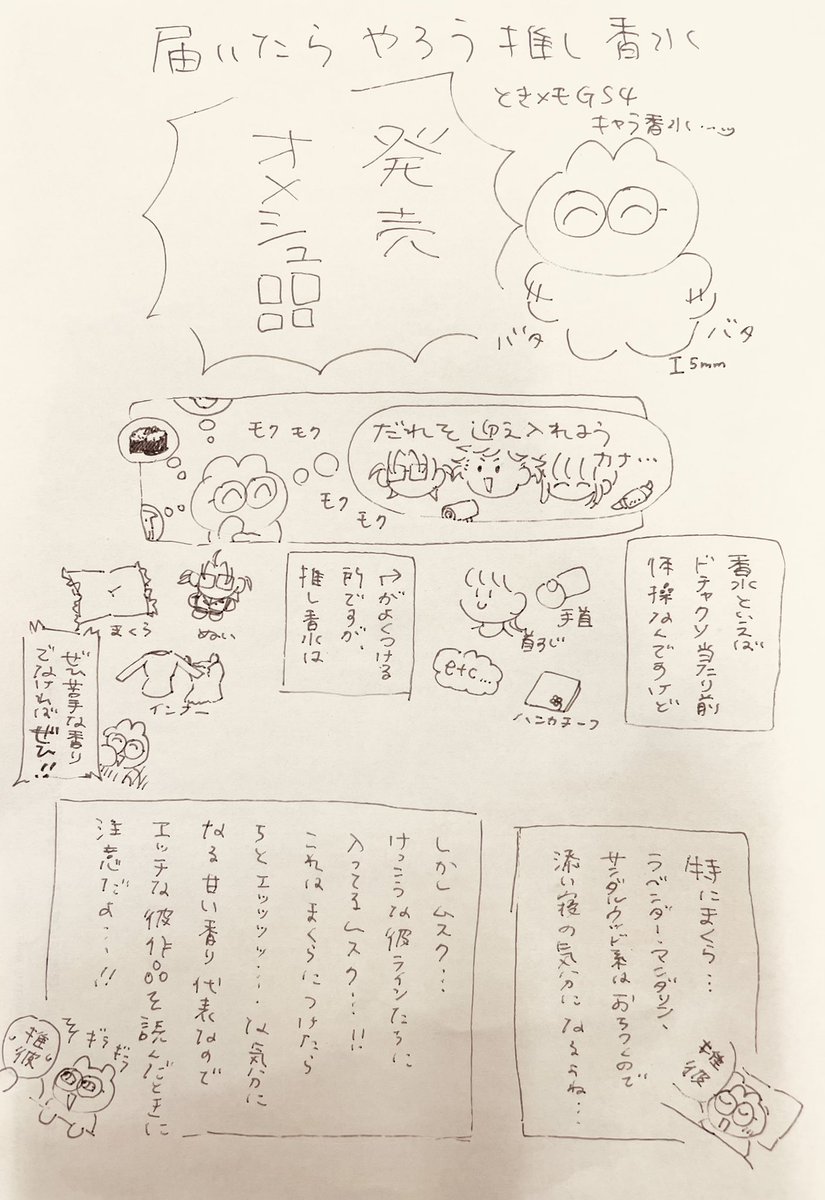 届いたら やろう 推し 香水
ときメモGS4
キャラ香水…
発売
オメシュ品
バタ
バタ
5mm
モク モク
モク
モク
だれを迎え入れよう
カナ…
香水といえば
ドチャクソ当たり前
体操なんですけど
手首
首すじ
etc…
ハンカチーフ
↑がよくつける
所ですが、
推し香水は
まくら
ぬい
インナー
ぜひ苦手な香り
でなければぜひ!!
特にまくら…
ラベンダー、マンダリン、
サンダルウッド系はおちつくので
添い寝の気分になるよね…
推彼
しかしムスク…
けっこうな彼ラインたちに
入ってるムスク…!!
これはまくらにつけたら
ちとエッッッッ…な気分に
なる甘い香り代表なので
エッチな彼作品を読んだときに
注意だよ…!!
推彼
ギラ
ギラ